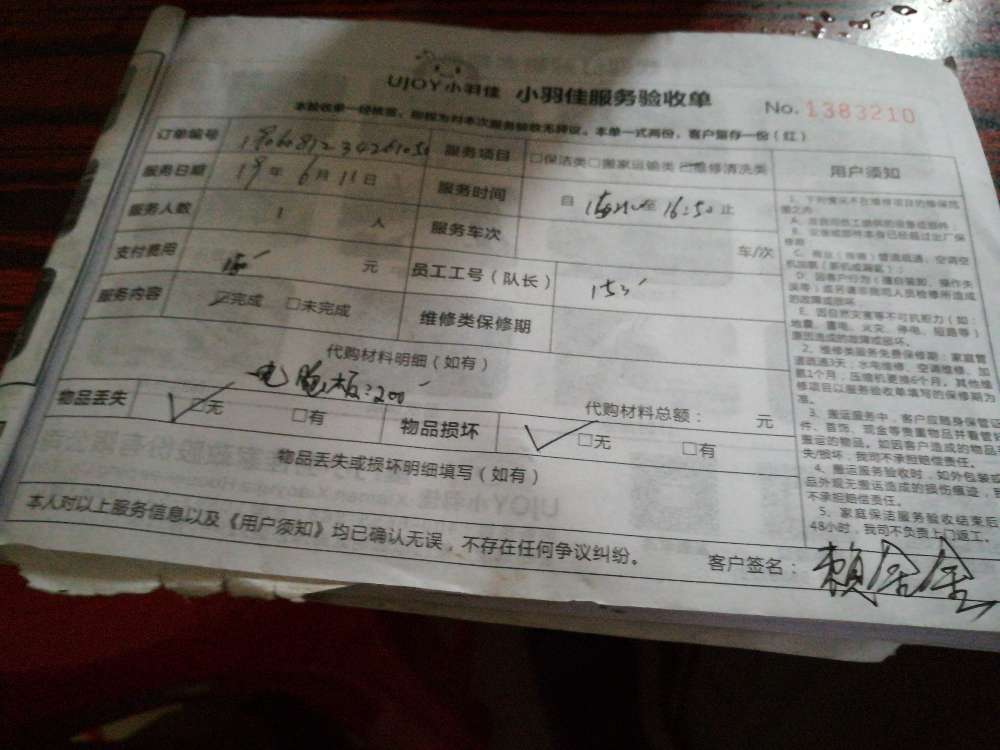 UJOY小羽佳 小羽佳服务验收单 No.1383210
本验收单一经核签，即视为对本次服务验收无异议。本单一式两份，客户留存一份（红）
订单编号 服务项目 □保洁类□搬家运输类 ☑维修清洗类 用户须知
服务日期 19年6月11日 服务时间 自 至16:50止
服务人数 1 人 服务车次 车/次
支付费用 元 员工工号（队长）
服务内容 ☑完成 □未完成 维修类保修期
代购材料明细（如有）
电脑板:200
代购材料总额： 元
物品丢失 ☑无 □有 物品损坏 ☑无 □有
物品丢失或损坏明细填写（如有）
本人对以上服务信息以及《用户须知》均已确认无误，不存在任何争议纠纷。
客户签名：
1、下列情况不在维修项目的保修范
围之内
D、因客户行为（擅自装卸、操作失
误等）或另请非我司人员检修所造成
的故障或损坏
E、因自然灾害等不可抗拒力（如：
地震、雷电、火灾、停电、短路等）
原因造成的故障或损坏。
2、维修类服务免费保修期：家庭管
道疏通3天；水电维修、空调维修、加
氟1个月；压缩机更换6个月。其他维
修项目以服务验收单填写的保修期为
准。
3、搬运服务中，客户应随身保管证
件、首饰、现金等贵重物品并看管
搬运的物品。如因客户造成的物品
失/损坏，我司不承担赔偿责任。
4、搬运服务验收时，如外包装或
品外观无搬运造成的损伤痕迹，
不承担赔偿责任。
5、家庭保洁服务验收结束后
48小时，我司不负责上门返工。